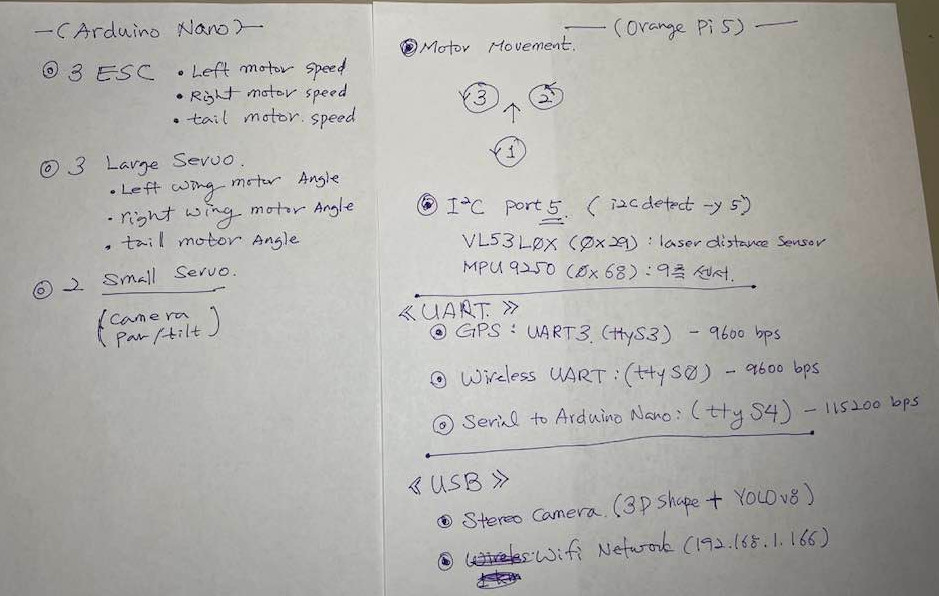 -(Arduino Nano)-
◎ 3 ESC • Left motor speed
• Right motor speed
• tail motor. speed
◎ 3 Large Servo.
• Left wing motor Angle
• right wing motor Angle
• tail motor Angle
◎ 2 Small Servo.
(camera
Pan/tilt)
— (Orange Pi 5) —
◎ Motor Movement.
3 2
↑
1
◎ I²C port 5. (i2cdetect -y 5)
VL53L0X (0x29) : laser distance sensor
MPU9250 (0x68) : 9축 센서.
≪UART.≫
◎ GPS : UART3. (ttyS3) - 9600 bps
◎ Wireless UART : (ttyS0) - 9600 bps
◎ Serial to Arduino Nano : (ttyS4) - 115200 bps
≪USB≫
◎ Stereo Camera. (3D shape + YOLOv8)
◎ Wifi Network (192.168.1.166)